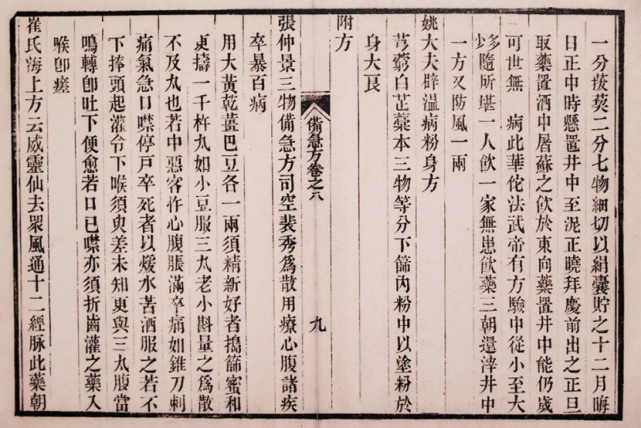 一分菝葜二分七物細切以絹囊貯之十二月晦
日正中時懸置井中至泥正曉拜慶前出之正旦
取藥置酒中屠蘇之飲於東向藥置井中能仍歲
可世無 病此華佗法武帝有方驗中從小至大
多少隨所堪一人飲一家無患飲藥三朝還滓井中
一方又防風一兩
姚大夫辟溫病粉身方
芎藭白芷藁本三物等分下篩內粉中以塗粉於
身大良
附方
備急方卷之八
九
張仲景三物備急方司空裴秀為散用療心腹諸疾
卒暴百病
用大黃乾薑巴豆各一兩須精新好者搗篩蜜和
更擣一千杵丸如小豆服三丸老小斟量之為散
不及丸也若中惡客忤心腹脹滿卒痛如錐刀刺
痛氣急口噤停尸卒死者以煖水苦酒服之若不
下捧頭起灌令下喉須臾差未知更與三丸腹當
鳴轉卽吐下便愈若口已噤亦須折齒灌之藥入
喉卽瘥
崔氏海上方云威靈仙去眾風通十二經脈此藥朝